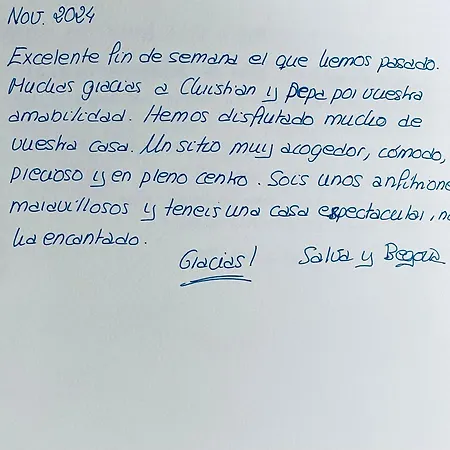 Nov. 2024
Excelente fin de semana el que hemos pasado.
Muchas gracias a Christian y Pepa por vuestra
amabilidad. Hemos disfrutado mucho de
vuestra casa. Un sitio muy acogedor, cómodo,
precioso y en pleno centro. Sois unos anfitrione
maravillosos y teneis una casa espectacular, n
ha encantado.
Gracias! Salva y Begoña